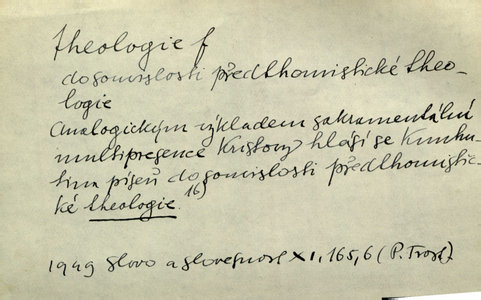 theologie f
do souvislosti předthomistické theo-
logie
Analogickým výkladem sakramentální
multipresence Kristovy hlásí se Kunhu-
tina píseň do souvislosti předthomistic-
ké theologie.16)
1949 Slovo a slovesnost XI, 165,6 (P. Trost)